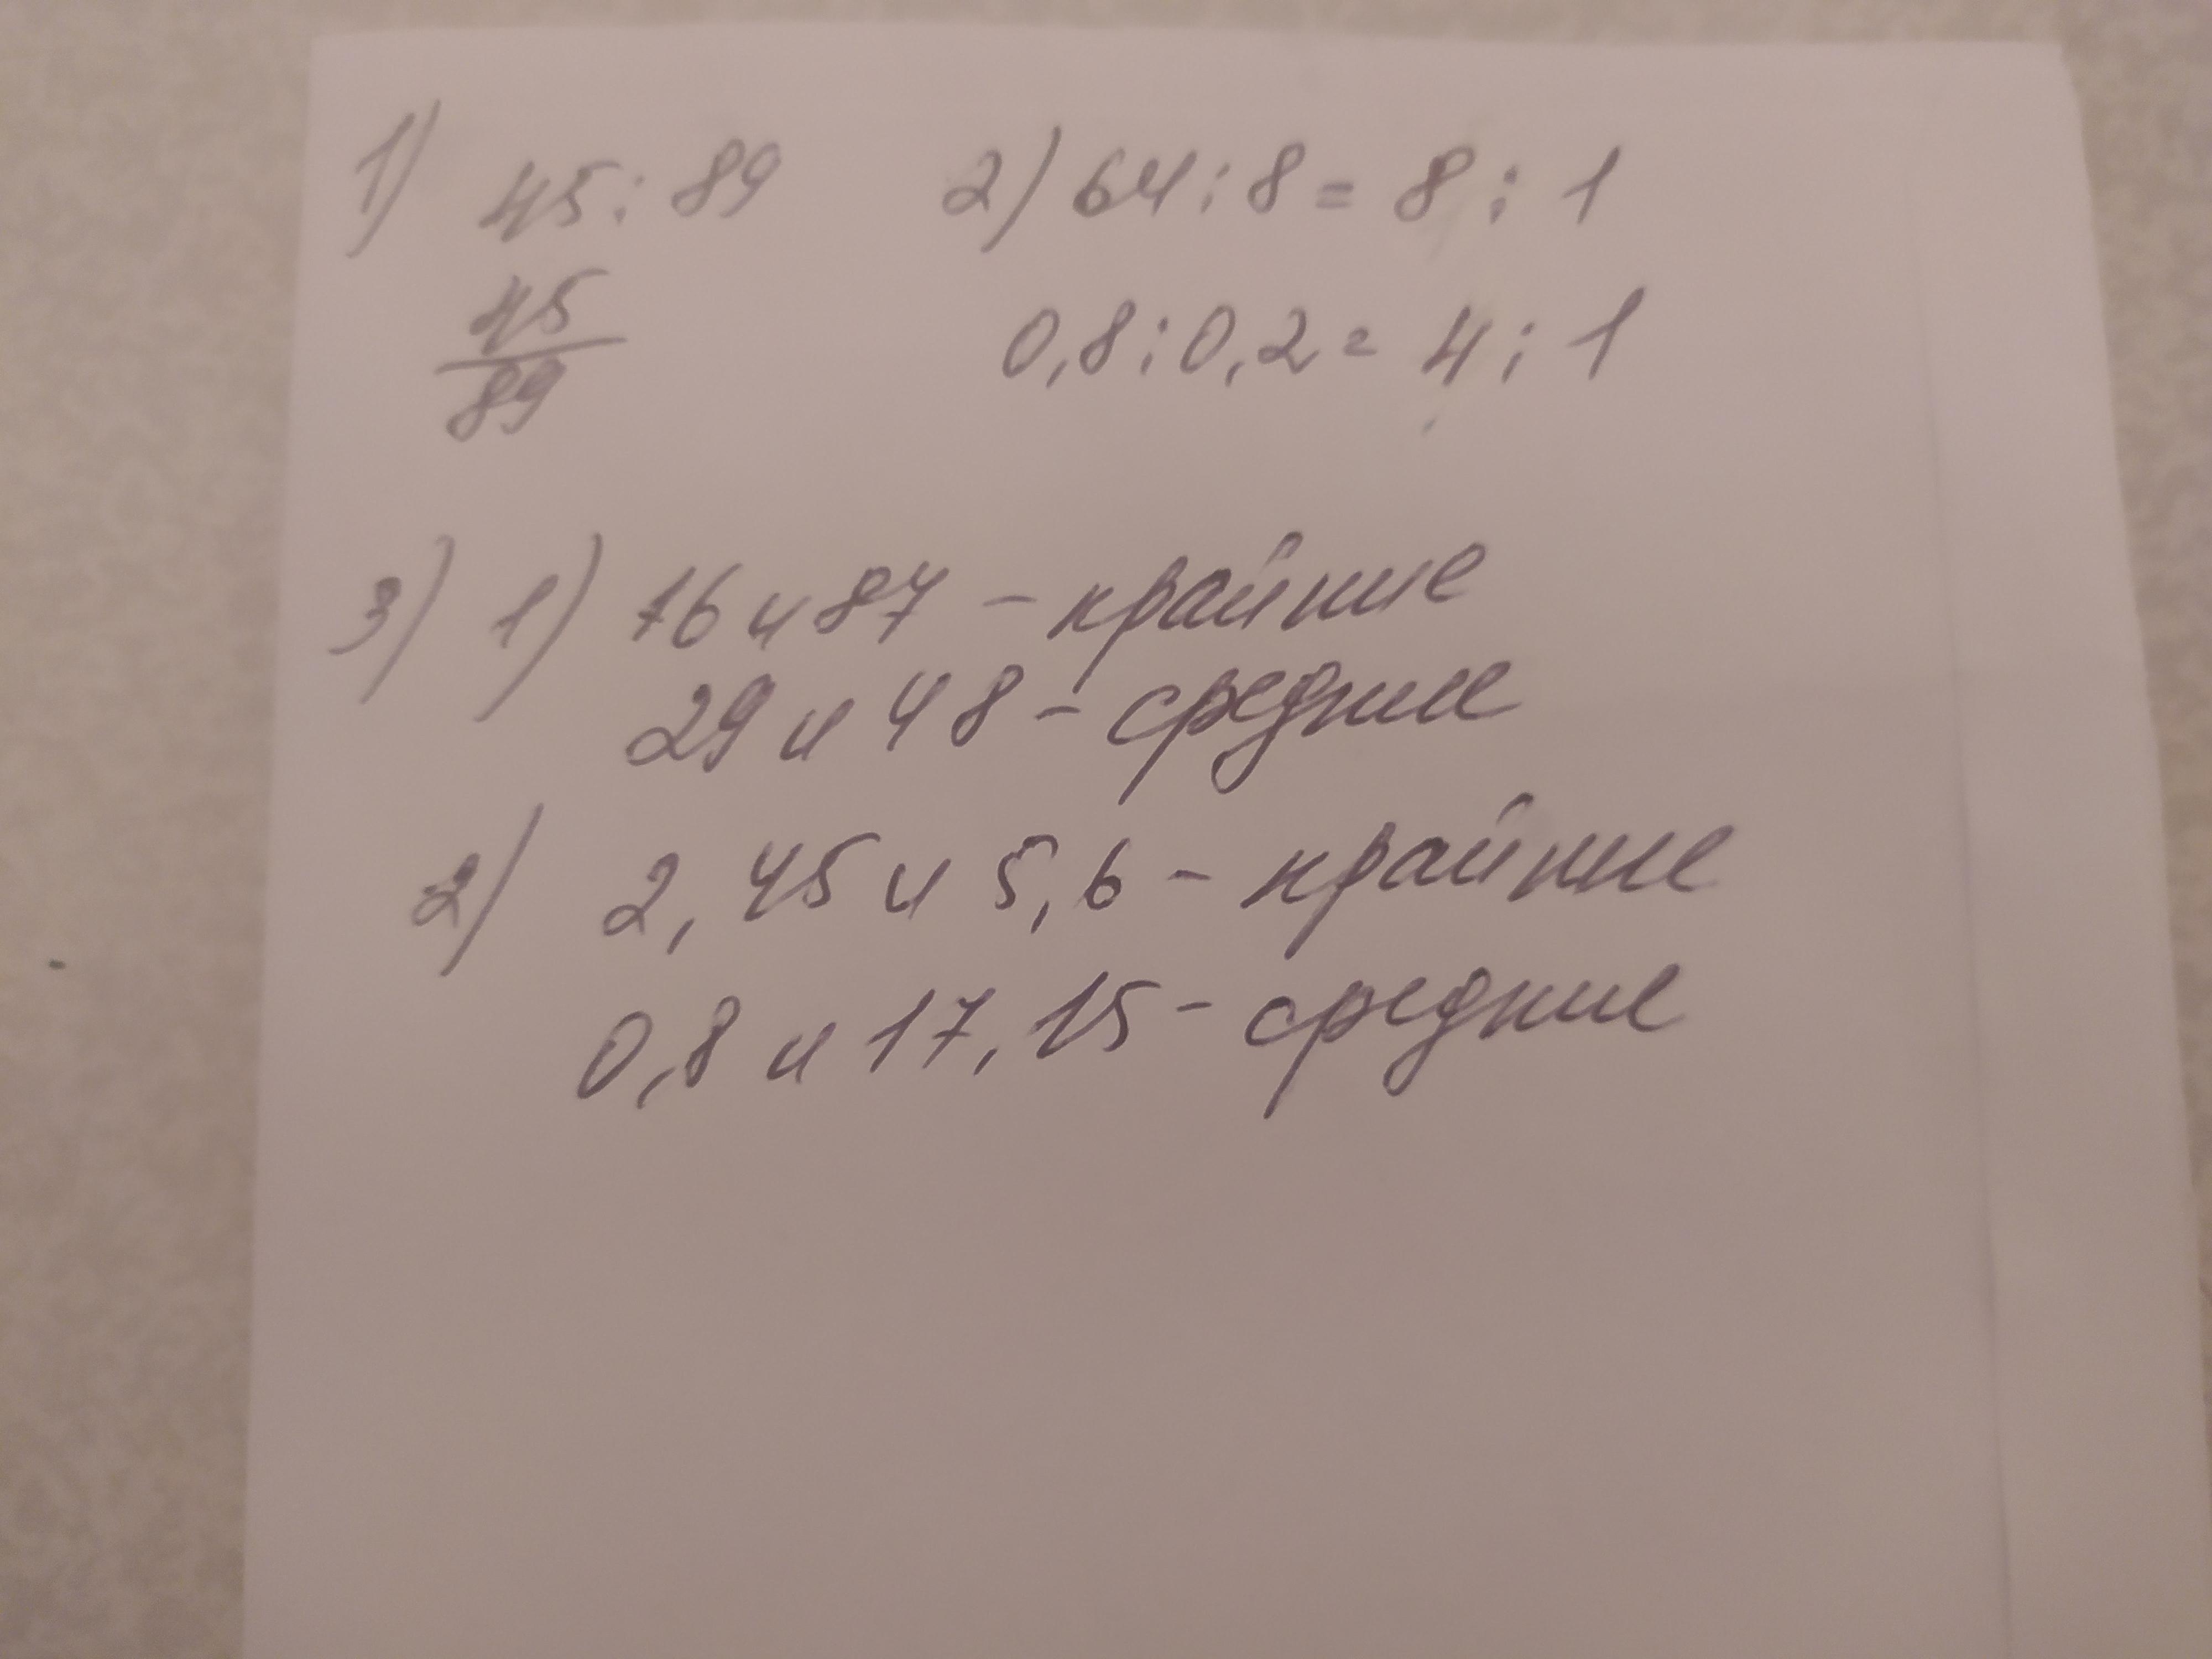 1) 45:89
45
89
2) 64:8=8:1
0,8:0,2=4:1
3) 1) 16 и 87 - крайние
29 и 48 - средние
2) 2,45 и 5,6 - крайние
0,8 и 17,15 - средние